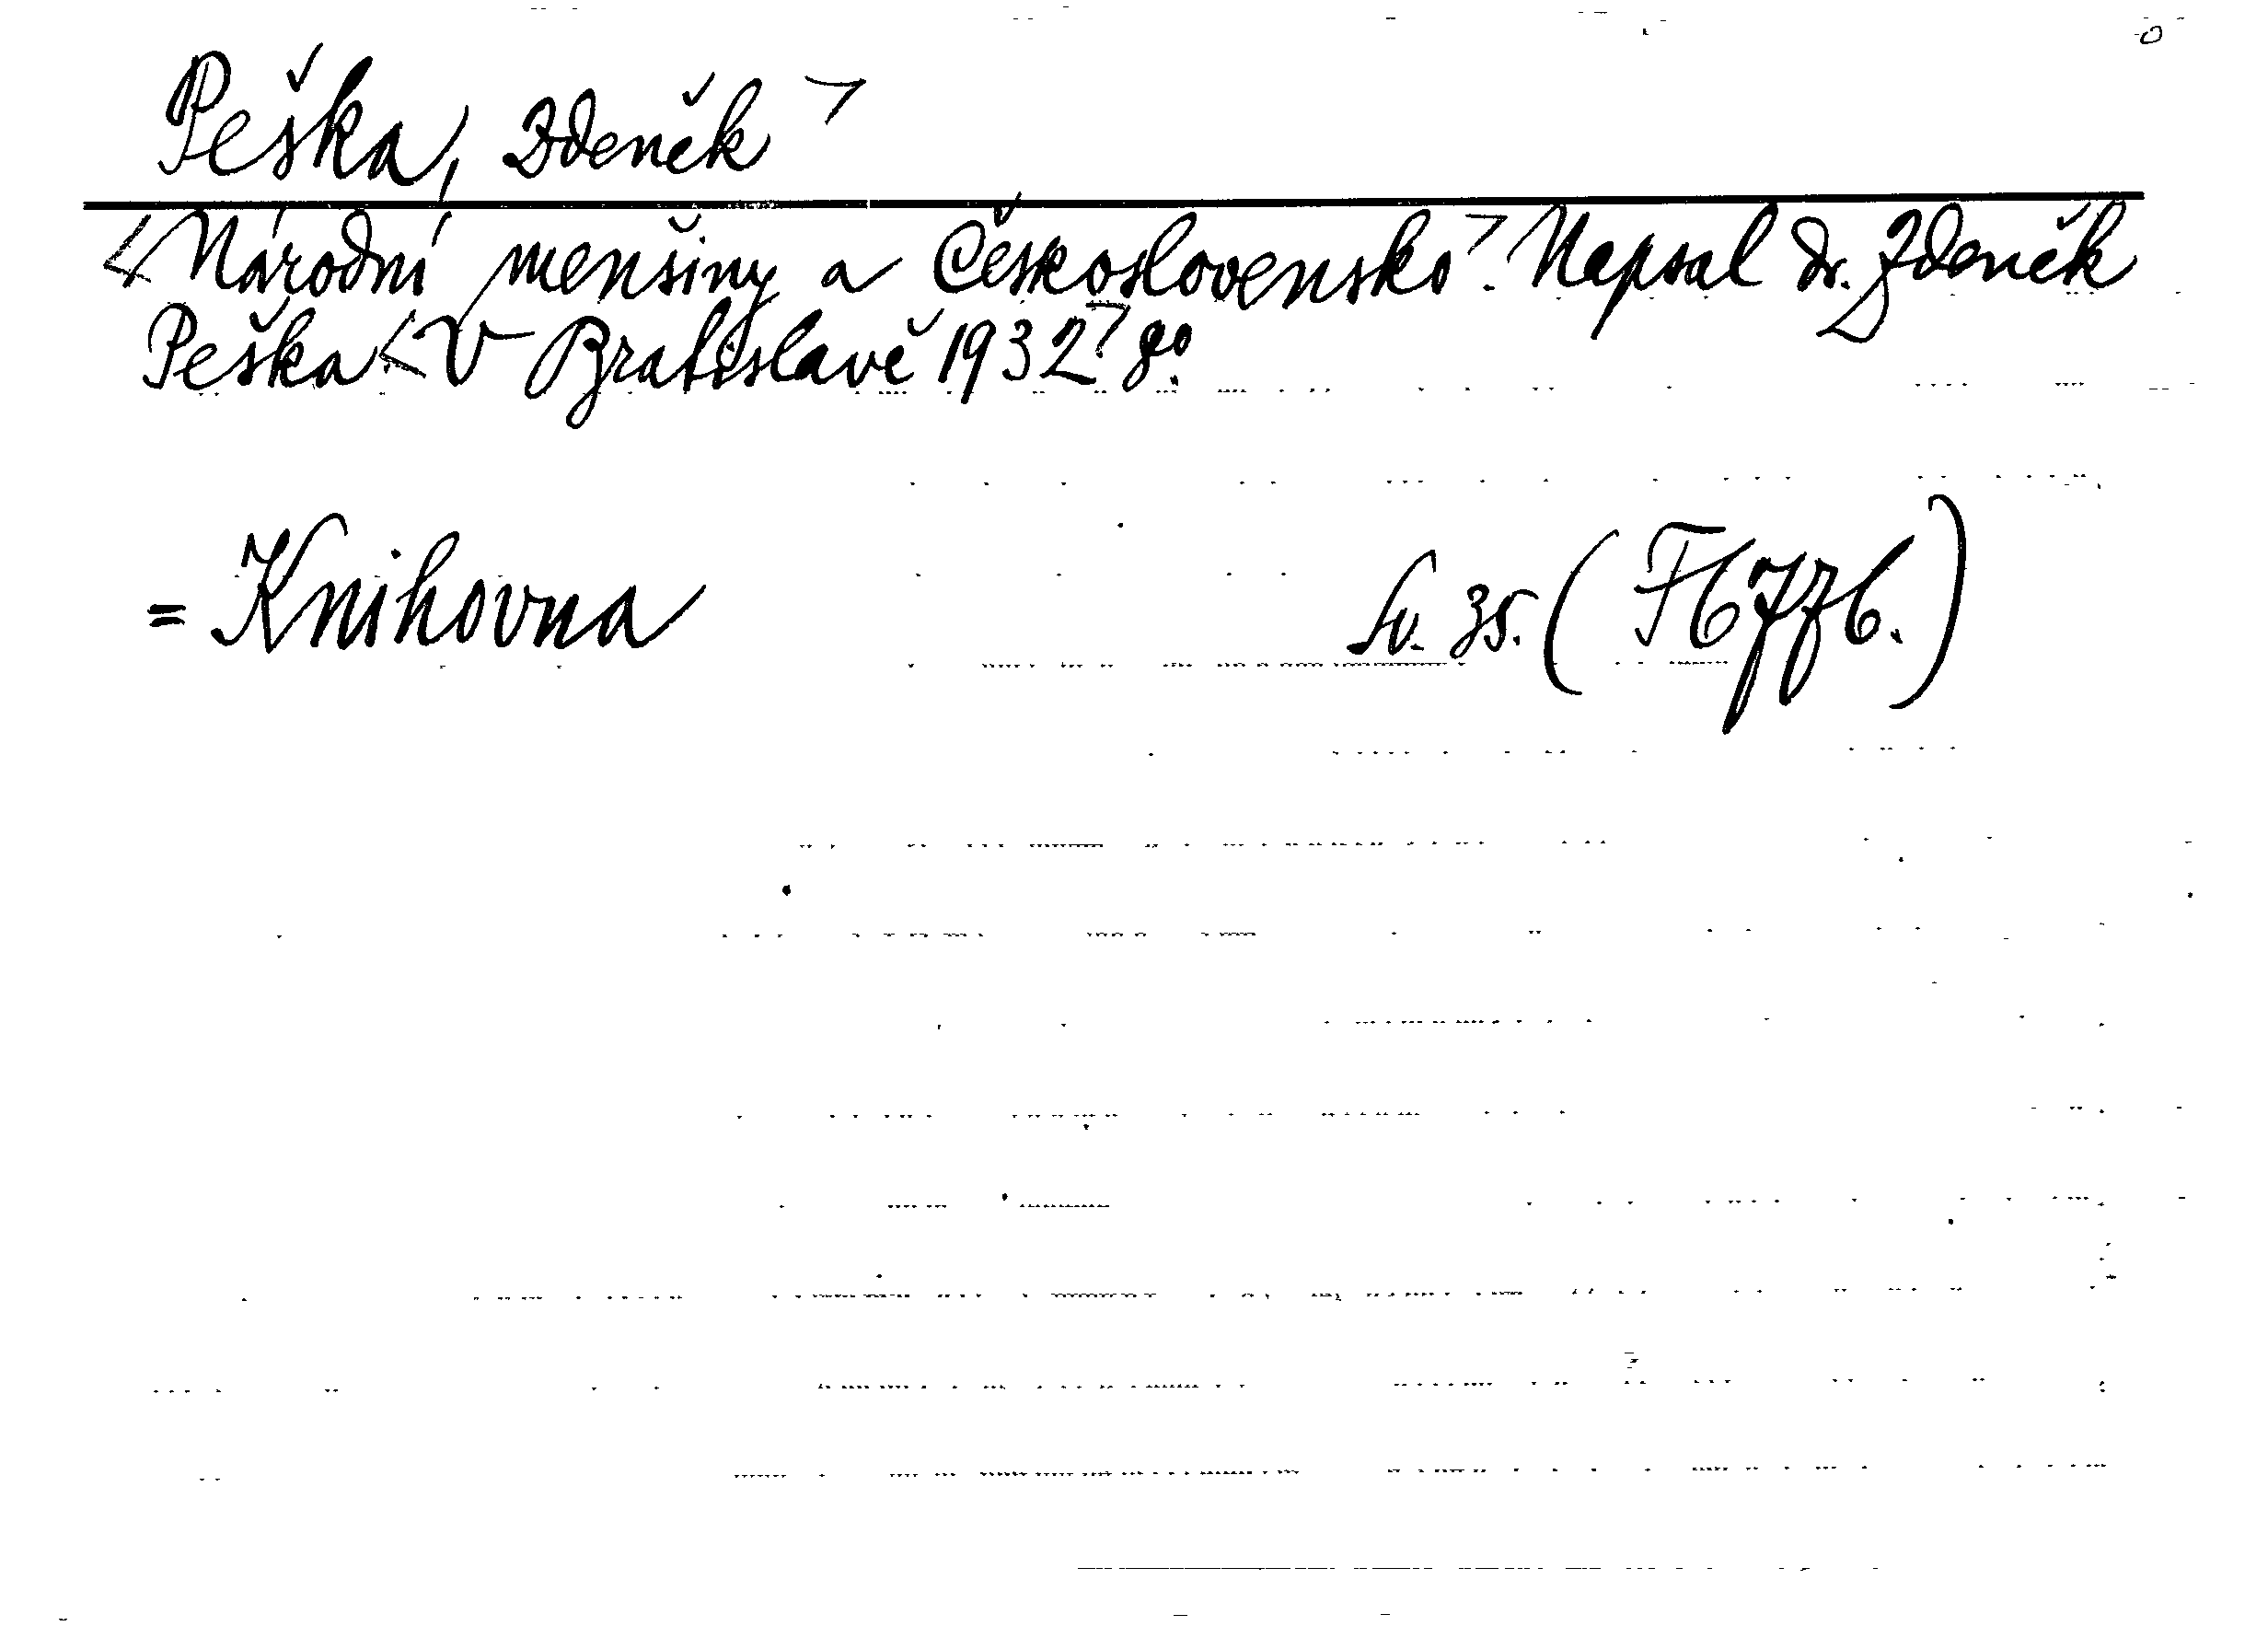 Peška, Zdeněk
Národní menšiny a Československo. Napsal dr. Zdeněk
Peška V Bratislavě 1932. 8º.
= Knihovna Sv. 35.